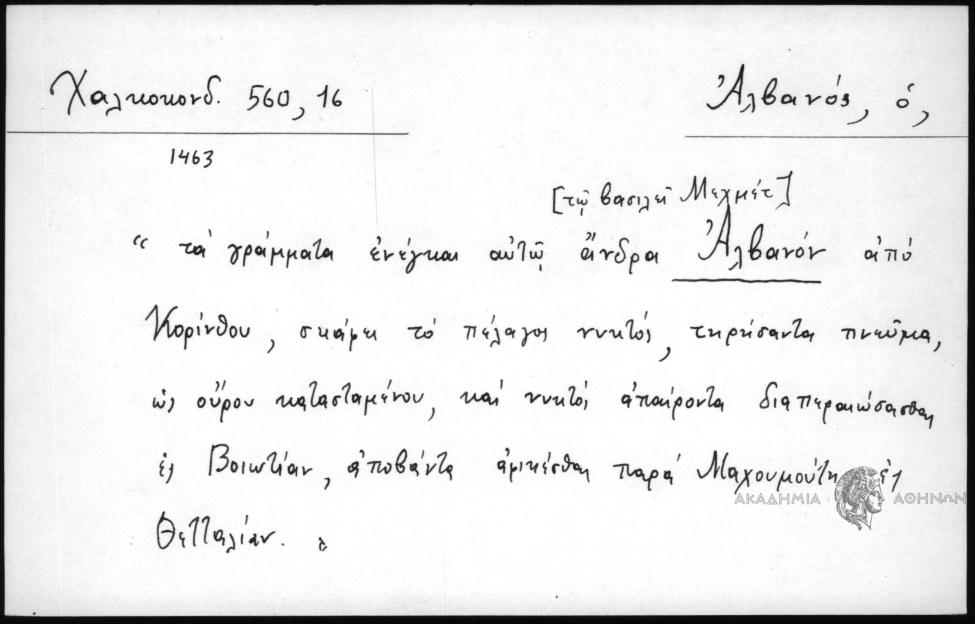 Χαλκοκονδ. 560, 16
Ἀλβανός, ὁ,
1463
[τῷ βασιλεῖ Μεχμέτ]
“ τὰ γράμματα ἐνέγκαι αὐτῷ ἄνδρα Ἀλβανόν ἀπό
Κορίνθου, σκάφει τό πέλαγος νυκτός, τηρήσαντα πνεῦμα,
ὡς οὔρου κατασταμένου, καί νυκτός ἀπαίροντα διαπεραιώσασθαι
ἐς Βοιωτίαν, ἀποβάντα ἀφικέσθαι παρά Μαχουμούτη ἐς
ΑΚΑΔΗΜΙΑ ΑΘΗΝΩΝ
Θετταλίαν. „